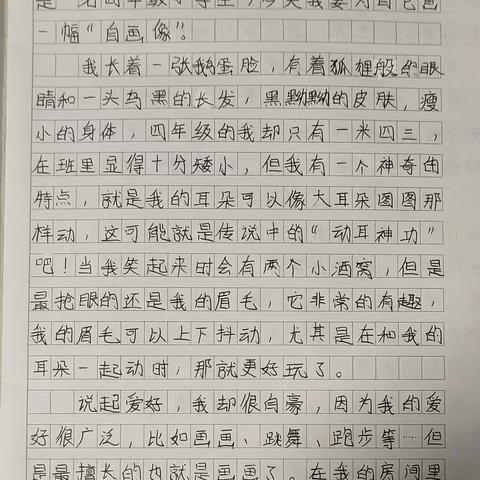 是一名四年级小学生,今天我要为自己画
一幅“自画像”。
我长着一张鹅蛋脸,有着狐狸般的眼
睛和一头乌黑的长发,黑黝黝的皮肤,瘦
小的身体,四年级的我却只有一米四三,
在班里显得十分矮小,但我有一个神奇的
特点,就是我的耳朵可以像大耳朵图图那
样动,这可能就是传说中的“动耳神功”
吧!当我笑起来时会有两个小酒窝,但是
最抢眼的还是我的眉毛,它非常的有趣,
我的眉毛可以上下抖动,尤其是在和我的
耳朵一起动时,那就更好玩了。
说起爱好,我却很自豪,因为我的爱
好很广泛,比如画画、跳舞、跑步等……但
是最擅长的也就是画画了。在我的房间里